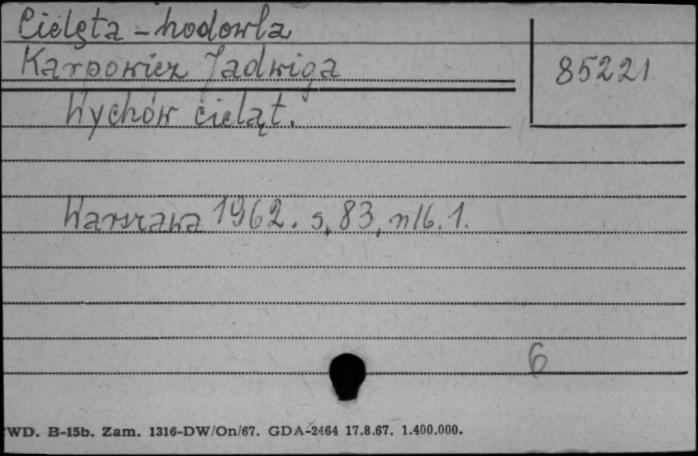 Cielęta - hodowla
Karpowicz Jadwiga
85221
Wychów cieląt.
Warszawa 1962. s, 83, nlb. 1.
6
WD. B-15b. Zam. 1316-DW/On/67. GDA-2464 17.8.67. 1.400.000.